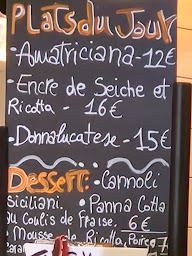 Plats du Jour
• Amatriciana - 12€
• Encre de Seiche et
Ricotta - 16€
• Donnalucatese - 15€
Dessert: • Cannoli
Siciliani. • Panna Cotta
au Coulis de Fraise. 6€
• Mousse de Ricotta, Poire 7